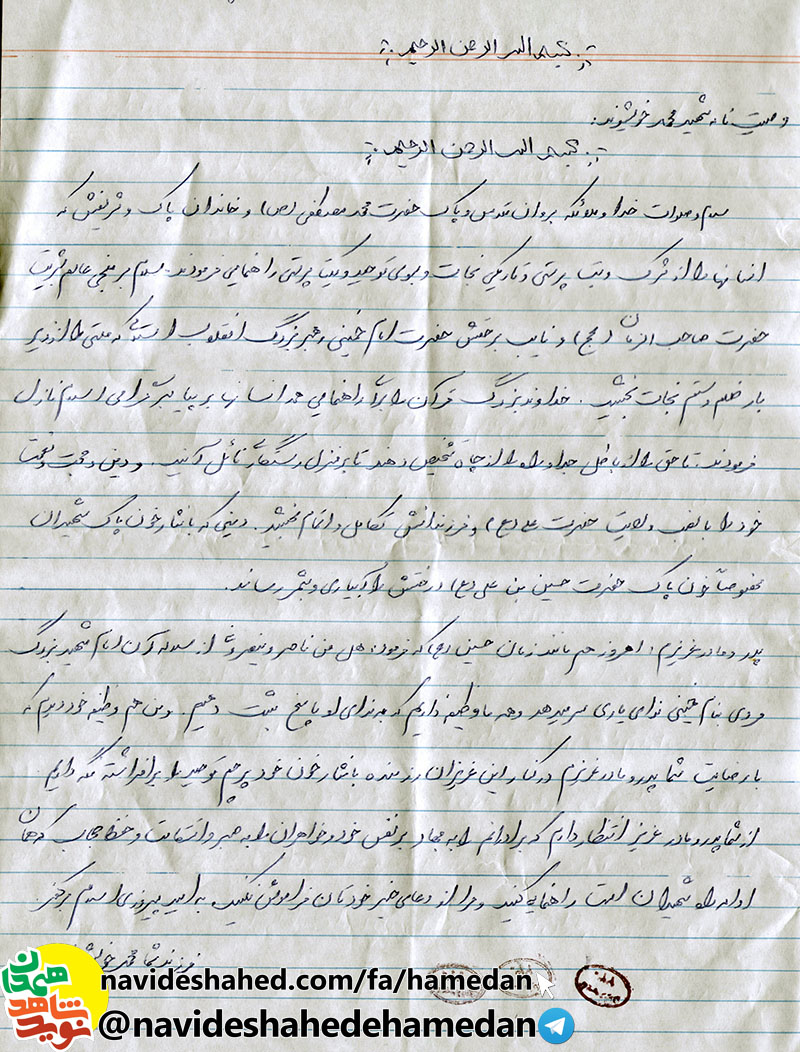 بسم الله الرحمن الرحیم
وصیت نامه شهید محمد خویشوند:
بسم الله الرحمن الرحیم
سلام و صلوات خدا و ملائکه بروان مقدس و پاک حضرت محمد مصطفی (ص) و خاندان پاک و شریفش که
انسانها را از شرک و بت پرستی و تاریکی نجات و بسوی توحید و یکتا پرستی راهنمایی فرمودند. سلام بر منجی عالم بشریت
حضرت صاحب الزمان (عج) و نایب برحقش حضرت امام خمینی رهبر بزرگ انقلاب اسلامی که ملتی را از زیر
بار ظلم و ستم نجات بخشید. خداوند بزرگ قرآن را برای راهنمایی همه انسانها بر پیامبر گرامی اسلام نازل
فرمودند. تا حق را از باطل جدا و راه را از چاه تشخیص دهند تا بر منزل رستگاری نائل آیند. و دین و حجت و نعمت
خود را با نصب ولایت حضرت علی (ع) و فرزندانش تکامل و اتمام بخشید. دینی که با نثار خون پاک شهیدان
مخصوصاً خون پاک حضرت حسین بن علی (ع) درختش را آبیاری و بثمر رساند.
پدر و مادر عزیزم: امروز هم مانند زمان حسین (ع) که فرمود: هل من ناصر ینصرنی از سلاله آن امام شهید بزرگ
مردی بنام خمینی ندای یاری سر میدهد و همه ما وظیفه داریم که به ندای او پاسخ مثبت دهیم. و من هم وظیفه خود دیدم که
با رضایت شما پدر و مادر عزیزم در کنار این عزیزان رزمنده با نثار خون خود پرچم توحید را برافراشته نگه دارم
از شما پدر و مادر عزیز انتظار دارم که برادرانم را به جهاد بر نفس خود و خواهران را به صبر و استقامت و حفظ حجاب که همان
ادامه راه شهیدان است راهنمایی کنید و مرا از دعای خیر خودتان فراموش نکنید. به امید پیروزی اسلام بر کفر
فرزند شما محمد
navideshahed.com/fa/hamedan
@navideshahedehamedan
نوید شاهد همدان